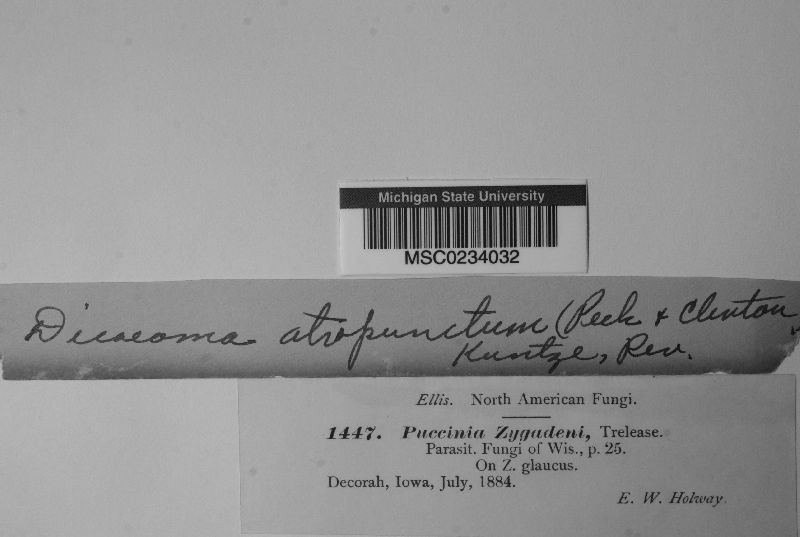 Michigan State University
MSC0234032
Dicaeoma atropunctum (Peck & Clinton)
Kuntze, Rev.
Ellis. North American Fungi.
1447. Puccinia Zygadeni, Trelease.
Parasit. Fungi of Wis., p. 25.
On Z. glaucus.
Decorah, Iowa, July, 1884.
E. W. Holway.